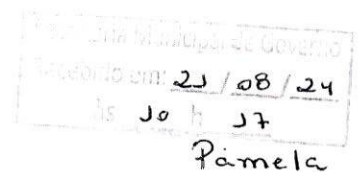 Municipal de Governo
Recebido em: 21 / 08 / 24
às 10 h 17
Pamela